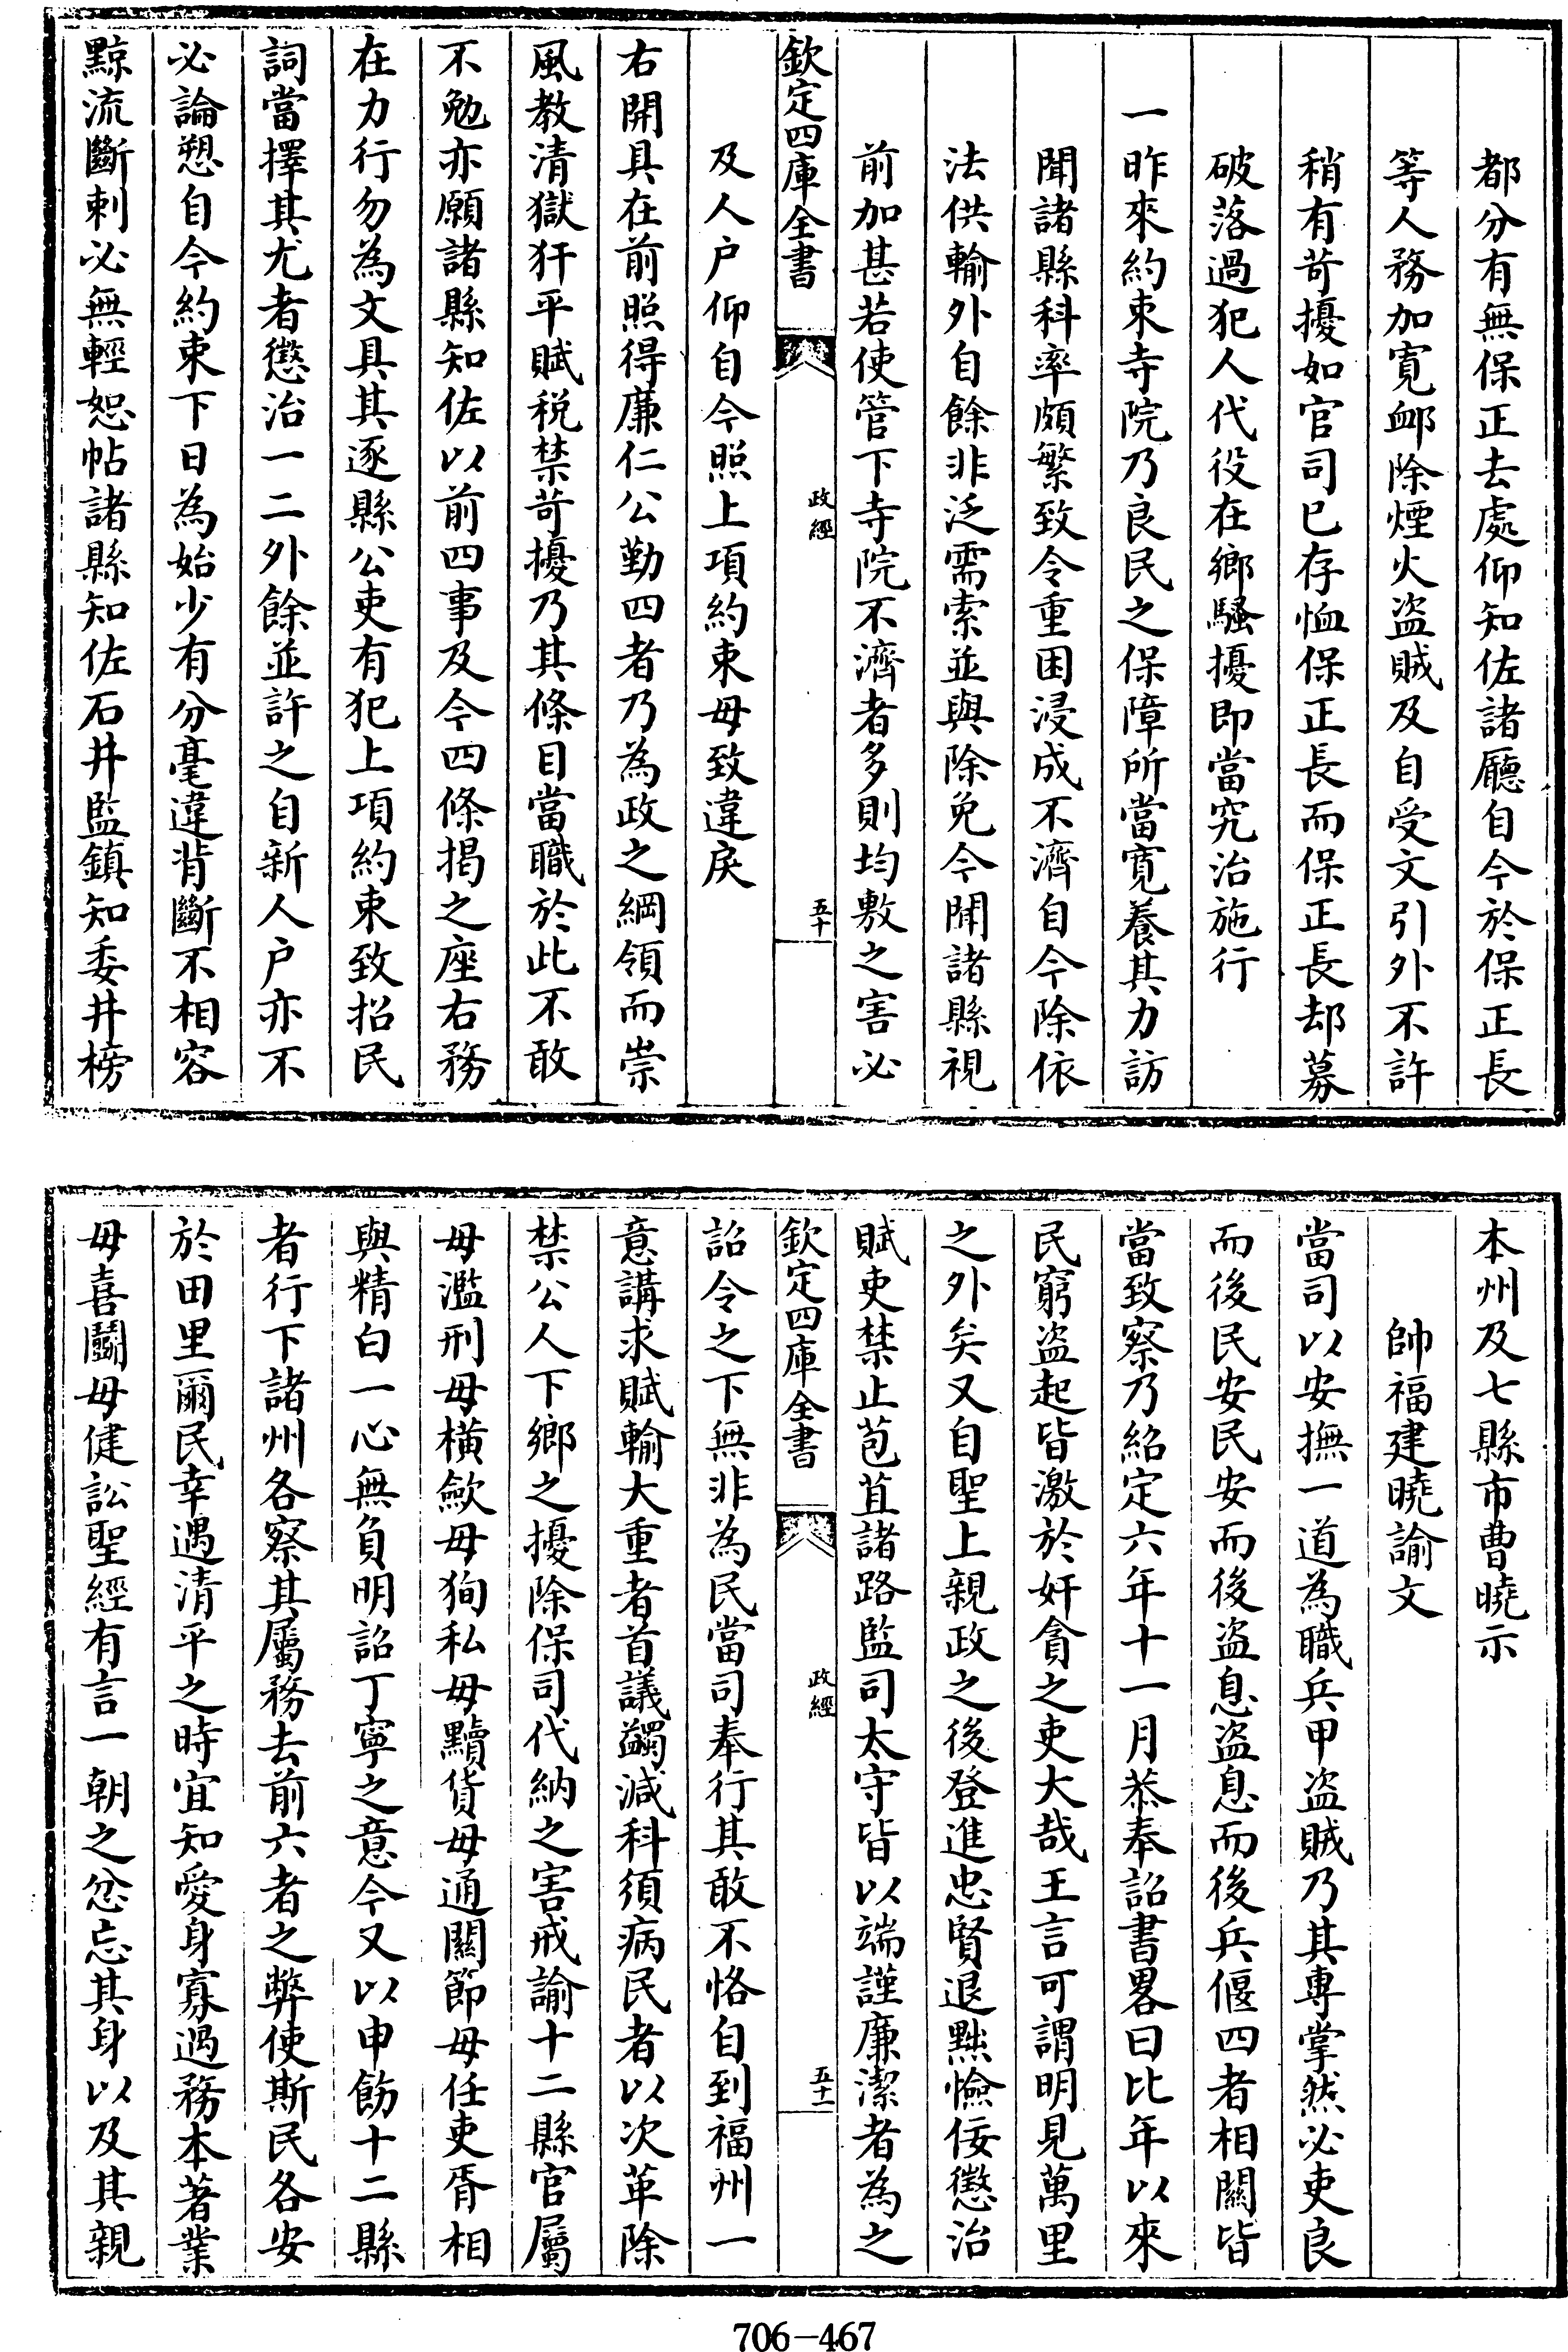 都分有無保正去處仰知佐諸廳自今於保正長
等人務加寛䘏除煙火盗賊及自受文引外不許
稍有苛擾如官司已存恤保正長而保正長却募
破落過犯人代役在鄉騷擾即當究治施行
一昨來約束寺院乃良民之保障所當寛養其力訪
聞諸縣科率頗繁致令重困浸成不濟自今除依
法供輸外自餘非泛需索並與除免今聞諸縣視
前加甚若使管下寺院不濟者多則均敷之害必
欽定四庫全書
政經
五十
及人户仰自今照上項約束毋致違戾
右開具在前照得廉仁公勤四者乃為政之綱領而崇
風教清獄犴平賦税禁苛擾乃其條目當職於此不敢
不勉亦願諸縣知佐以前四事及今四條揭之座右務
在力行勿為文具其逐縣公吏有犯上項約束致招民
詞當擇其尤者懲治一二外餘並許之自新人户亦不
必論愬自今約束下日為始少有分毫違背斷不相容
黥流斷刺必無輕恕帖諸縣知佐石井監鎮知委井榜
本州及七縣市曹曉示
帥福建曉諭文
當司以安撫一道為職兵甲盗賊乃其專掌然必吏良
而後民安民安而後盗息盗息而後兵偃四者相關皆
當致察乃紹定六年十一月恭奉詔書畧曰比年以來
民窮盗起皆激於奸貪之吏大哉王言可謂明見萬里
之外矣又自聖上親政之後登進忠賢退黜憸佞懲治
賦吏禁止苞苴諸路監司太守皆以端謹廉潔者為之
欽定四庫全書
政經
五十一
詔令之下無非為民當司奉行其敢不恪自到福州一
意講求賦輸大重者首議蠲減科須病民者以次革除
禁公人下鄉之擾除保司代納之害戒諭十二縣官屬
毋濫刑毋横歛毋狥私毋黷貨毋通關節毋任吏胥相
與精白一心無負明詔丁寧之意今又以申飭十二縣
者行下諸州各察其屬務去前六者之弊使斯民各安
於田里爾民幸遇清平之時宜知愛身寡過務本著業
毋喜鬬毋健訟聖經有言一朝之忿忘其身以及其親
706-467